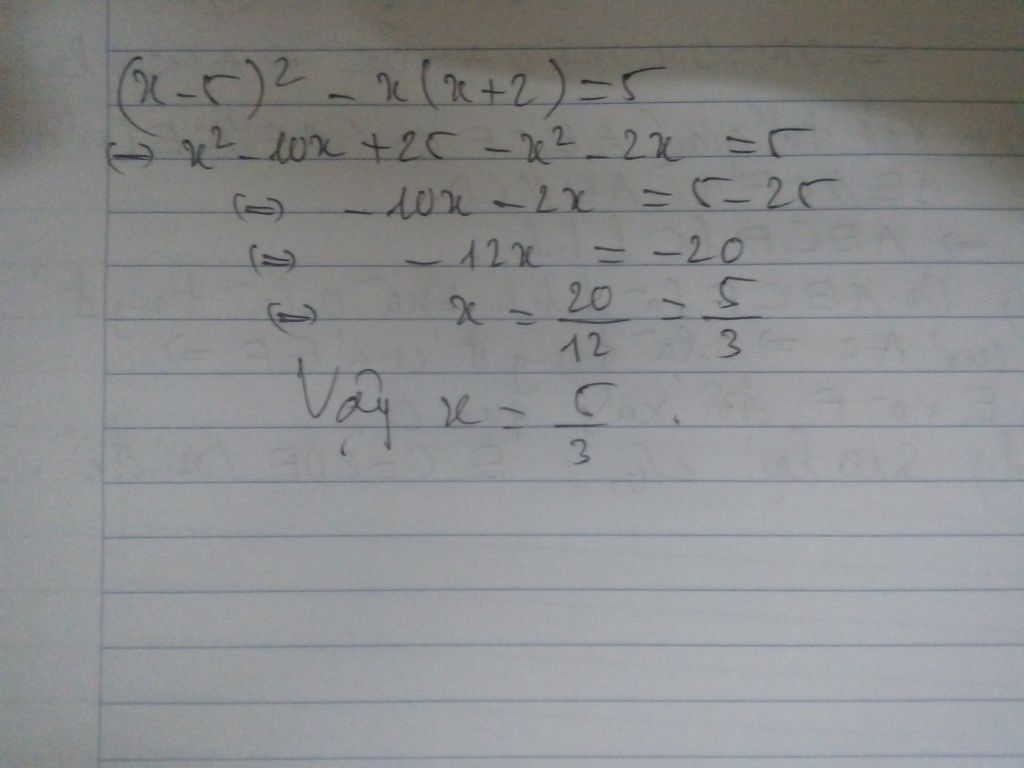 (x-5)² - x(x+2) = 5
⇔ x² - 10x + 25 - x² - 2x = 5
⇔ -10x - 2x = 5 - 25
⇔ -12x = -20
⇔ x = 20/12 = 5/3
Vậy x = 5/3.